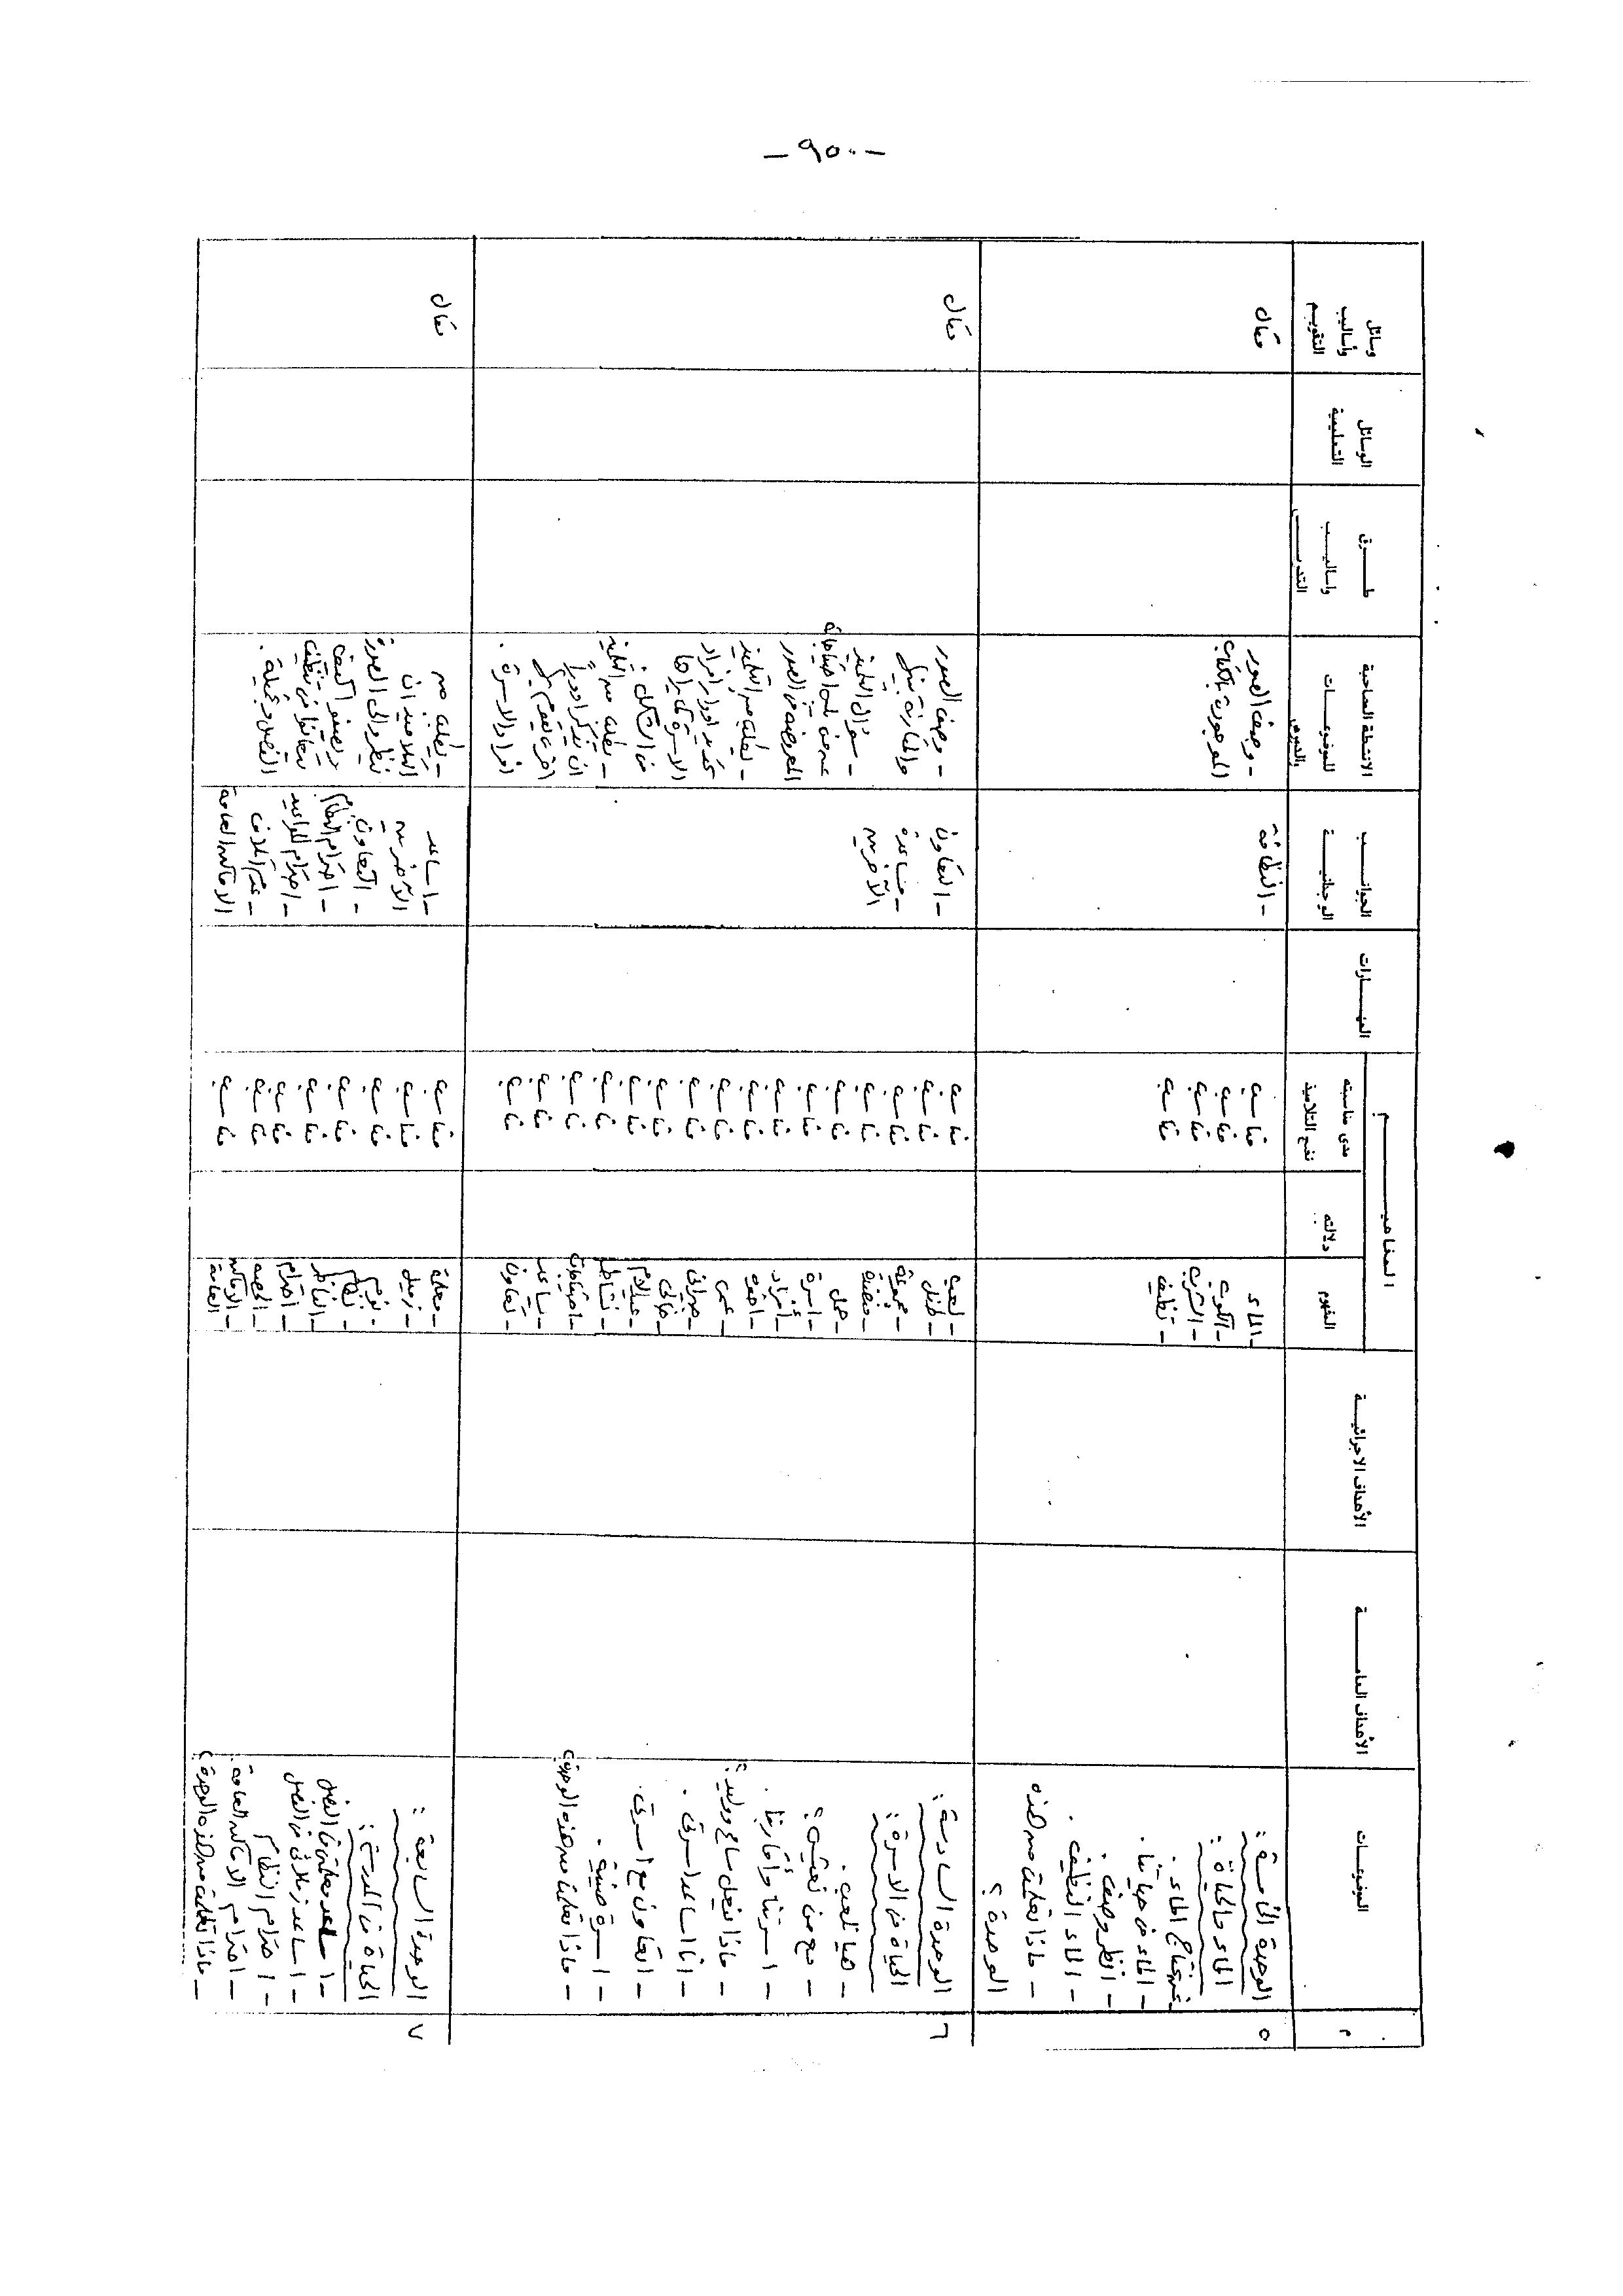 - ٩٥٠ -
م
الموضوعات
الأهداف العامة
الأهداف الاجرائية
المفاهيم
المفهوم
دلالته
مدى مناسبته
نضج التلاميذ
المهارات
الجوانب
الوجدانية
الانشطة المصاحبة
للموضوعات
بالدرس
طرق
واساليب
التدريس
الوسائل
التعليمية
وسائل
وأساليب
التقويم
٥
الوحدة الخامسة :
الماء والحياة :
نحتاج الماء .
- الماء في حياتنا .
- انظر وصف .
- الماء النظيف .
- ماذا تعلمت من هذه
الوحدة ؟
- الماء
- الكوب
- الشرب
- تنظيف
مناسب
مناسب
مناسب
مناسب
- النظافة
- وصف الصور
الموجودة بالكتاب
مقال
٦
الوحدة السادسة :
الحياة في الاسرة :
- هيا نلعب .
- مع من نعيش ؟
- اسرتنا وأقاربنا .
- ماذا نفعل سامح ووليد ؟
- أنا اساعد اسرتى .
- اتعاون مع اسرتى .
- اسرة صغيرة .
- ماذا تعلمت من هذه الوحدة ؟
- لعب
- طفل
- مجموعة
- جمل
- اسرة
- أفراد
- اخوة
- عمى
- جيرانى
- خالى
- نشاط
- احتياجات
- مساعدة
- تعاون
- التعاون
- مساعدة
الآخرين
- وصف الصور
والمقارنة بينهم
- سؤال التلميذ
المعروضة في الصور
- يطلب من التلميذ
تحديد ادوار افراد
الاسرة كما يراها
من الشكل .
- يطلب من التلميذ
ان يذكر ادوراً
اخرى يقوم بها
افراد الاسرة .
مقال
٧
الوحدة السابعة :
الحياة في المدرسة :
- اساعد معلمتى في الفصل
- اساعد زملائى في الفصل
- احترام النظام
- احترام الاماكن العامة .
- ماذا تعلمت من هذه الوحدة ؟
- معلمة
- زميل
- نظام
- الناظر
- احترام
- الاماكن
العامة
- اساعد
الآخرين
- التعاون
- احترام النظام
- احترام المواعيد
- عدم اتلاف
الاماكن العامة
- يطلب من
التلاميذ ان
ينظروا الى الصورة
ويصفوا كيف
يتعاونوا في تنظيف
الفصل وتجميله .
مقال